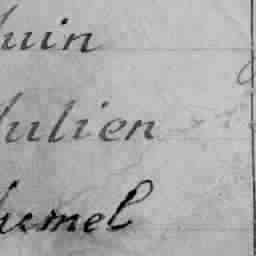 Juin
Julien
Jumel